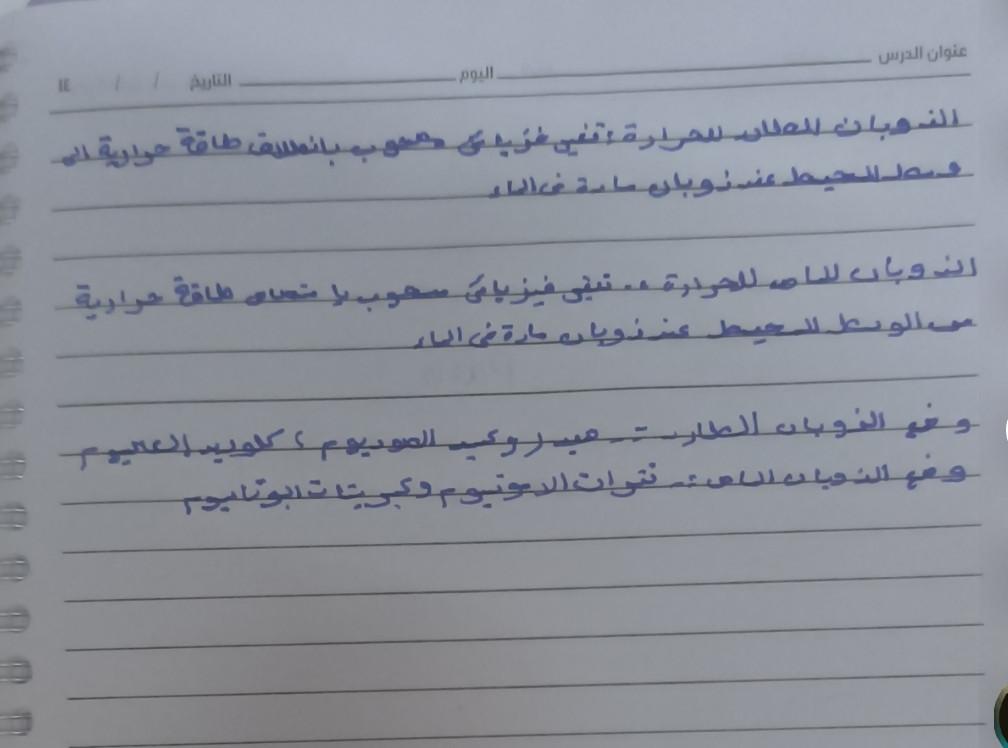 عنوان الدرس اليوم التاريخ / / ١٤
الذوبان الطارد للحرارة : تغير فيزيائي مصحوب بانطلاق طاقة حرارية الى
وسط المحيط عند ذوبان مادة في الماء
الذوبان الماص للحرارة :- تغير فيزيائي مصحوب بامتصاص طاقة حرارية
من الوسط المحيط عند ذوبان مادة في الماء
الذوبان الطارد :- هيدروكسيد الصوديوم ، كلوريد الكالسيوم
الذوبان الماص :- نترات الامونيوم وكبريتات البوتاسيوم